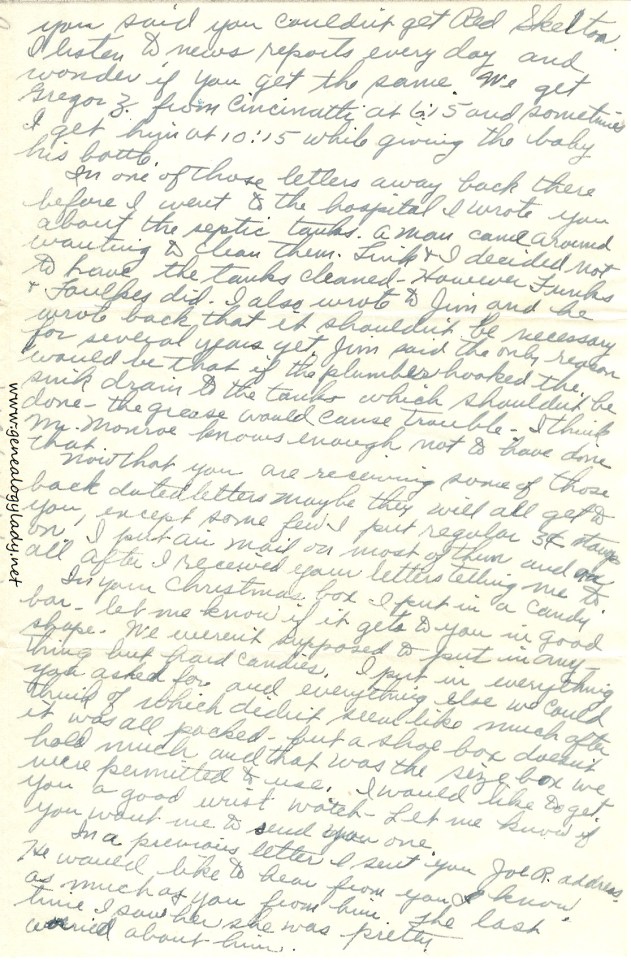 you said you couldn't get Red Skelton.
I listen to news reports every day and
wonder if you get the same. We get
Gregor Z. from Cincinatti at 6:15 and sometimes
I get him at 10:15 while giving the baby
his bottle.
In one of those letters away back there
before I went to the hospital I wrote you
about the septic tanks. A man came around
wanting to clean them. Link & I decided not
to have the tanks cleaned - However Funks
& Foulkes did. I also wrote to Jim and he
wrote back that it shouldn't be necessary
for several years yet. Jim said the only reason
would be that if the plumber hooked the
sink drain to the tanks which shouldn't be
done - the grease would cause trouble - I think
Mr. Monroe knows enough not to have done
that.
Now that you are receiving some of those
back dated letters maybe they will all get to
you, except some few I put regular 3¢ stamps
on. I put air mail on most of them and on
all after I received your letters telling me to.
In your Christmas box I put in a candy
bar - let me know if it gets to you in good
shape. We weren't supposed to put in any-
thing but hard candies. I put in everything
you asked for and everything else we could
think of which didn't seem like much after
it was all packed - but a shoe box doesn't
hold much and that was the size box we
were permitted to use. I would like to get
you a good wrist watch - Let me know if
you want me to send you one.
In a previous letter I sent you Joe R. address.
He would like to hear from you I know
as much as you from him. The last
time I saw her she was pretty
worried about him.
www.genealogylady.net